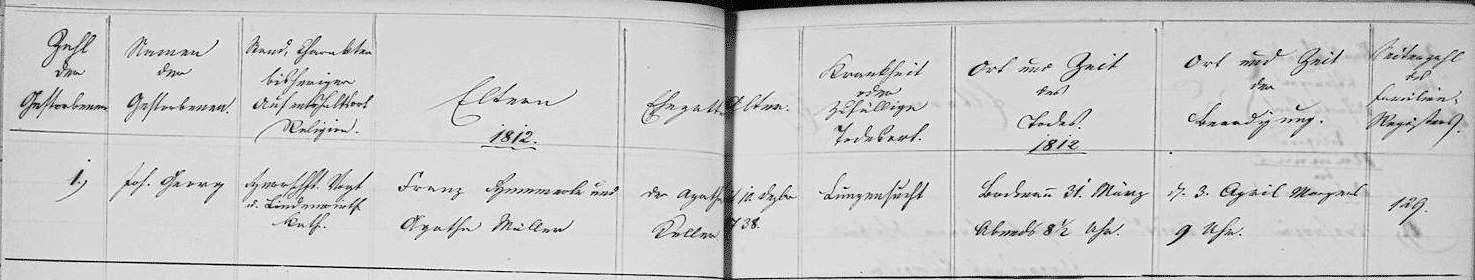 Zahl
der
Gestorbenen
Namen
der
Gestorbenen.
Stand, Charakter
bisheriger
Aufenthaltsort
Religion.
Eltern
1812.
Ehegatte
Alter.
Krankheit
oder
Zufällige
Todesart.
Ort und Zeit
des
Todes.
1812
Ort und Zeit
der
Beerdigung.
Seitenzahl
des
Familien-
Registers.
1.)
Joh. Georg
Vogt
u. Lindenwirth
Kath.
Franz und
Agatha Müller
der Agatha
Keller
738.
Lungensucht
31. März
Abends 8 1/2 Uhr.
d. 3. April Morgens
9 Uhr.
129.